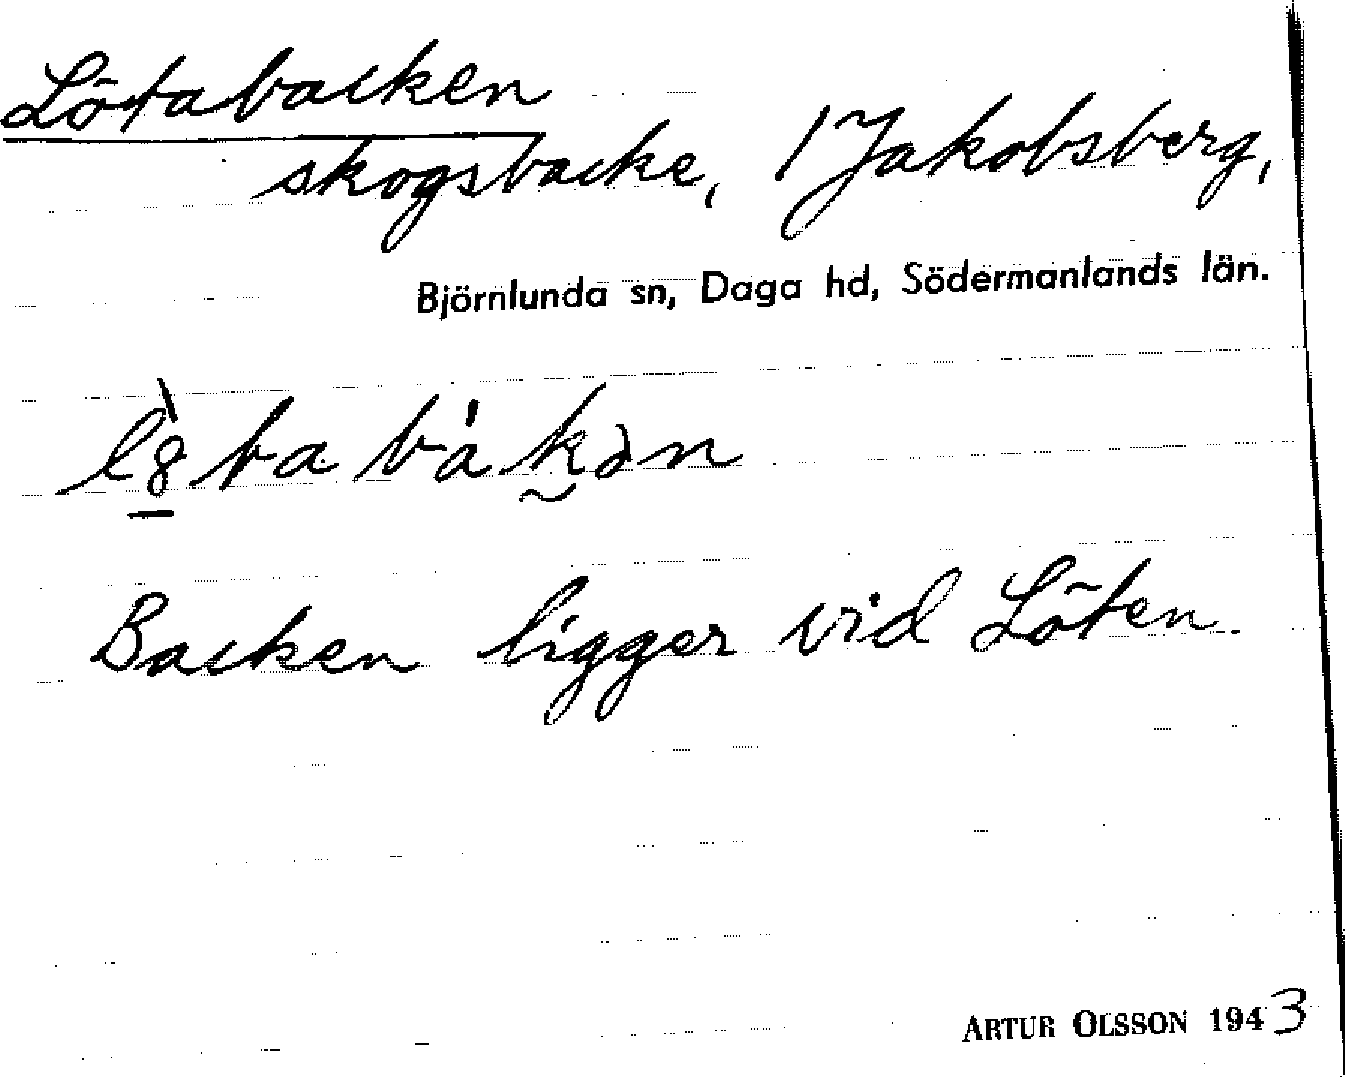 Lötabacken
skogsbacke, 1 Jakobsberg,
Björnlunda sn, Daga hd, Södermanlands län.
Backen ligger vid Löten
ARTUR OLSSON 1943